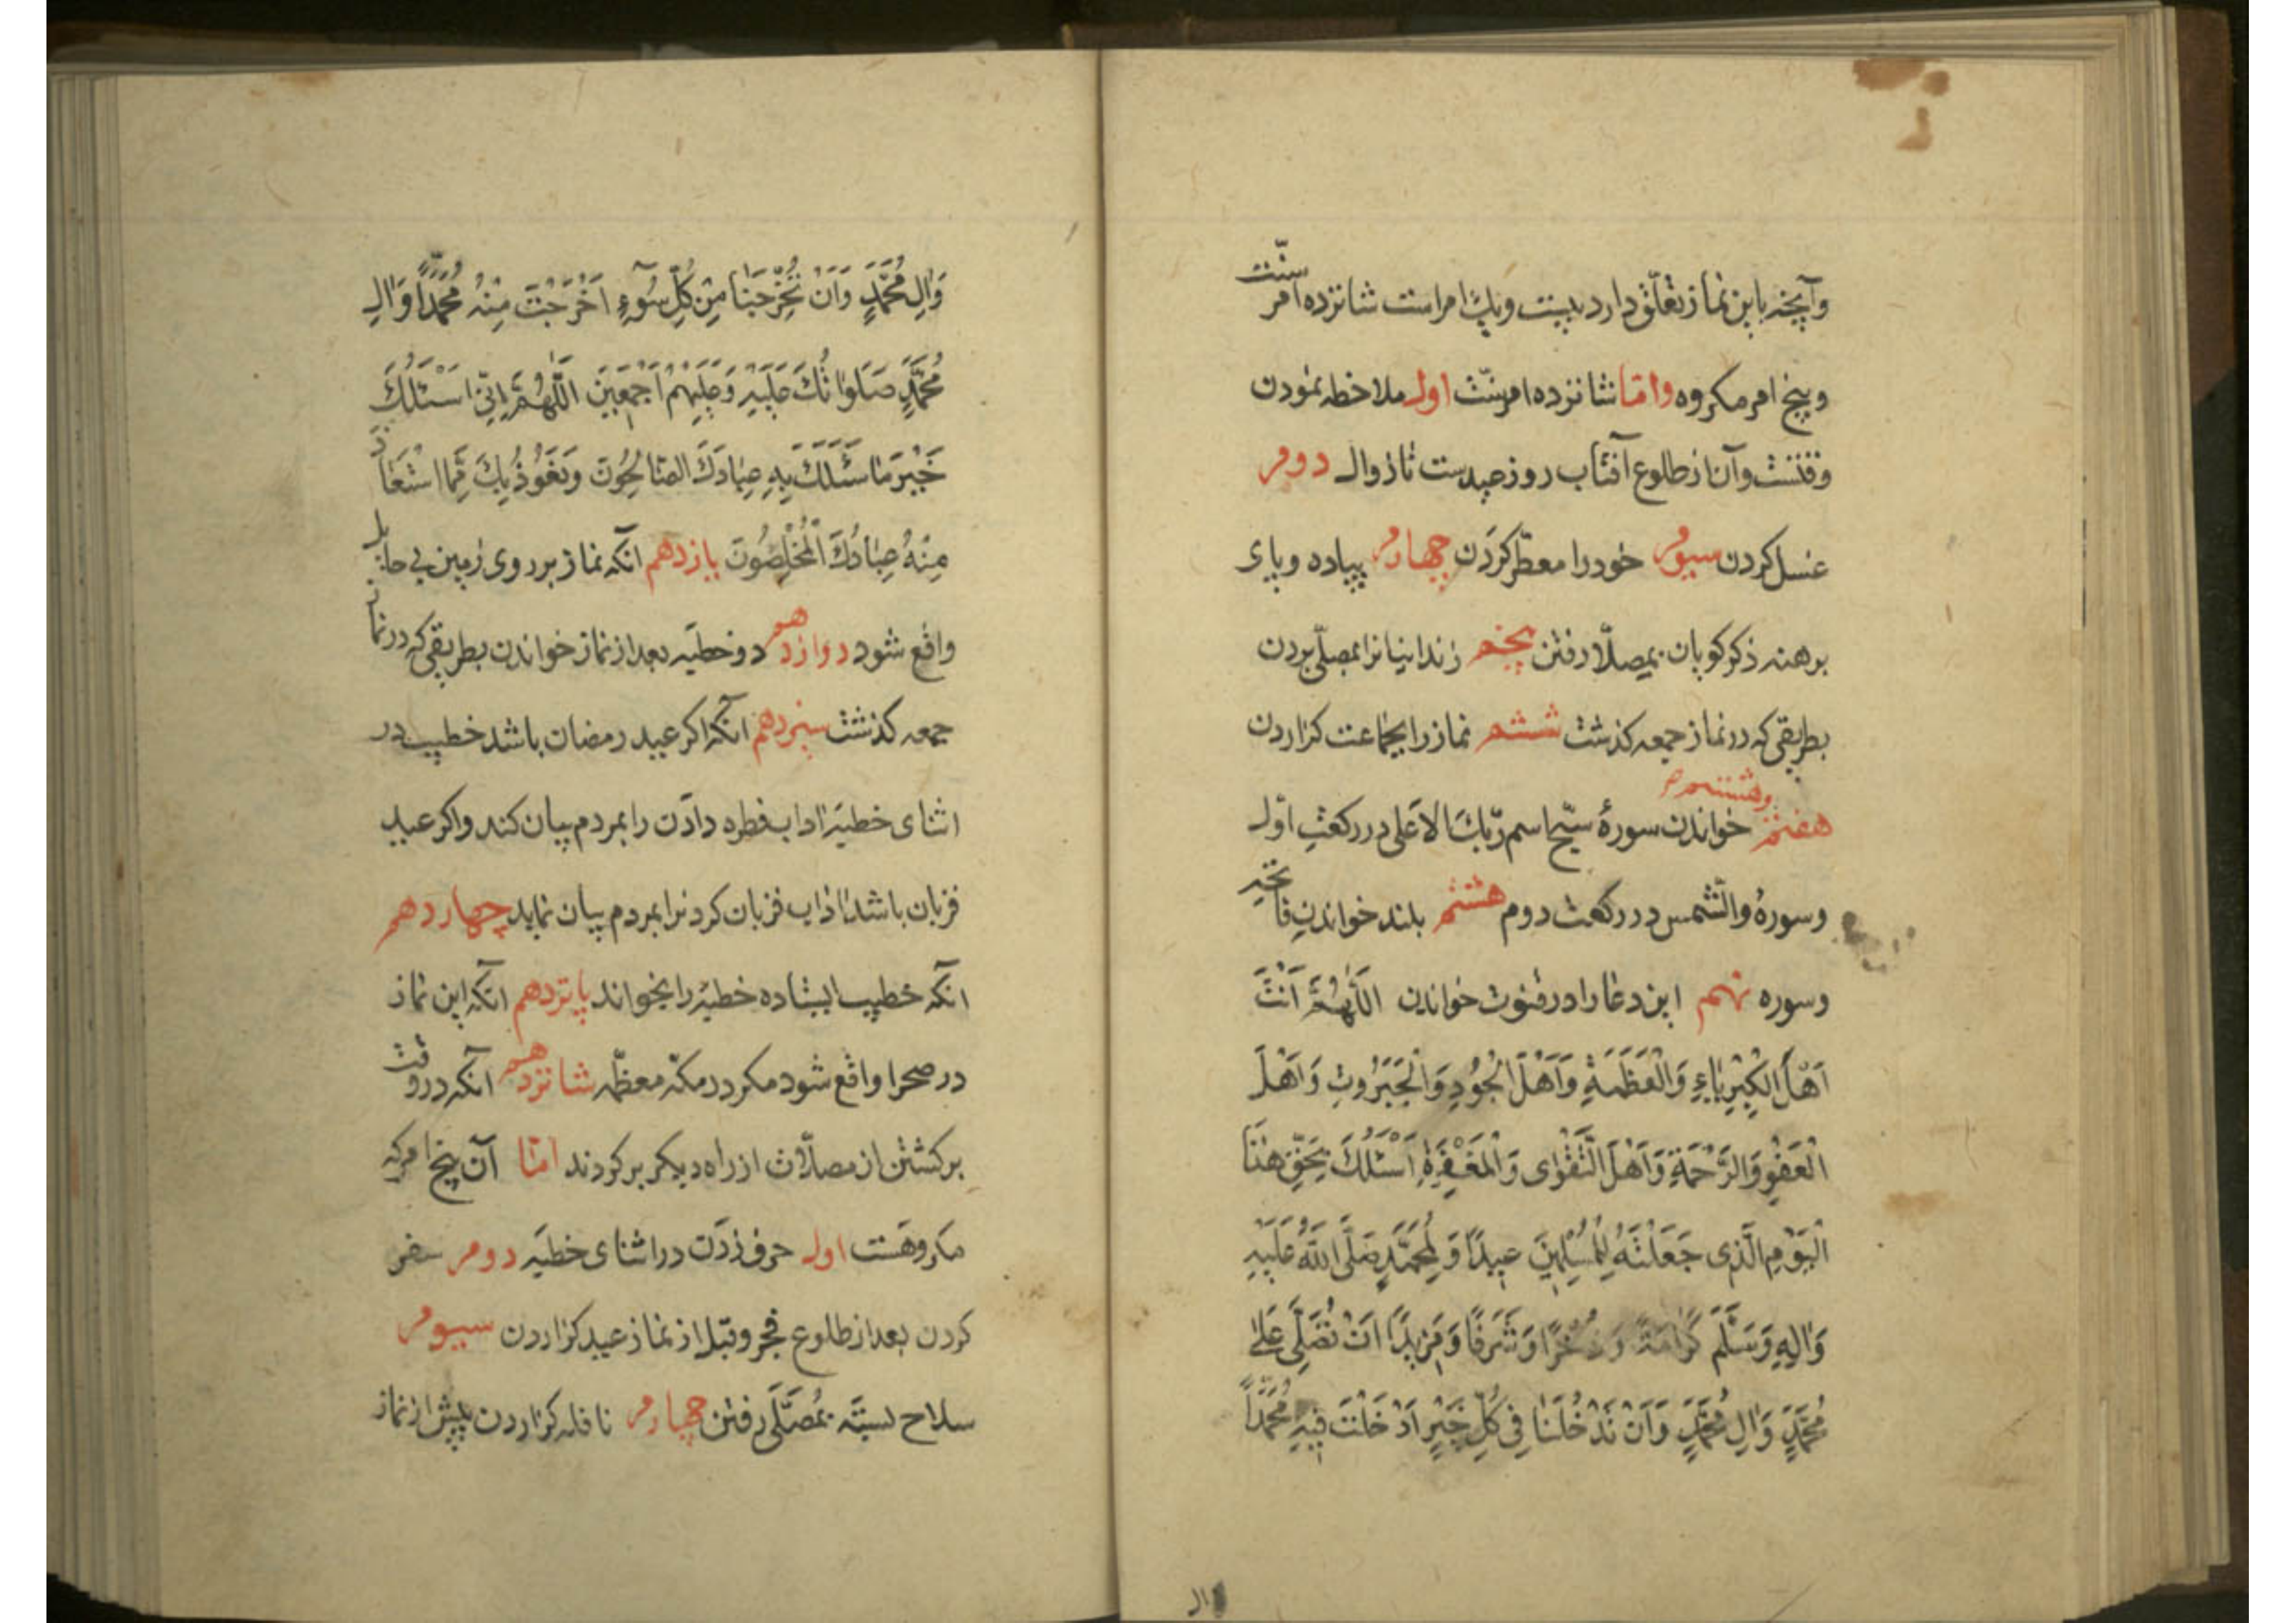 وآنچه باین نماز تعلّق دارد بیست ویک امراست شانزده امر سنّت
وپنج امر مکروه وامّا شانزده امرسنّت اول ملاحظه نمودن
وقتست وآن از طلوع آفتاب روز عیدست تا زوال دوم
غسل کردن سیوم خود را معطّر کردن چهارم پیاده وپای
برهنه ذکر کویان بمصلّا رفتن پنجم زندانیانرا بمصلّی بردن
بطریقی که در نماز جمعه کذشت ششم نماز را بجماعت کزاردن
هفتم وهشتم خواندن سورهٔ سبّح اسم ربّک الاعلی در رکعت اوّل
وسورهٔ والشّمس در رکعت دوم هشتم بلند خواندن فاتحه
وسوره نهم این دعا را در قنوت خواندن اَللّٰهُمَّ اَنْتَ
اَهْلَ الْکِبْرِیٰاءِ وَالْعَظَمَةِ وَاَهْلَ الْجُودِ وَالْجَبَرُوتِ وَاَهْلَ
الْعَفْوِ وَالرَّحْمَةِ وَاَهْلَ التَّقْوٰی وَالْمَغْفِرَةِ اَسْئَلُکَ بِحَقِّ هٰذَا
الْیَوْمِ الَّذی جَعَلْتَهُ لِلْمُسْلِمینَ عیدًا وَلِمُحَمَّدٍ صَلَّی اللّٰهُ عَلَیْهِ
وَاٰلِهِ وَسَلَّمَ کَرٰامَةً وَذُخْرًا وَشَرَفًا وَمَزیدًا اَنْ تُصَلِّیَ عَلیٰ
مُحَمَّدٍ وَاٰلِ مُحَمَّدٍ وَاَنْ تُدْخِلَنٰا فی کُلِّ خَیْرٍ اَدْخَلْتَ فیهِ مُحَمَّدًا
وال
وَاٰلِ مُحَمَّدٍ وَاَنْ تُخْرِجَنٰا مِنْ کُلِّ سُوٓءٍ اَخْرَجْتَ مِنْهُ مُحَمَّدًا وَاٰلِ
مُحَمَّدٍ صَلَوٰاتُکَ عَلَیْهِ وَعَلَیْهِمْ اَجْمَعینَ اَللّٰهُمَّ اِنّی اَسْئَلُکَ
خَیْرَ مٰا سَئَلَکَ بِهِ عِبٰادُکَ الصّٰالِحُونَ وَنَعُوذُ بِکَ مِمَّا اسْتَعٰاذَ
مِنْهُ عِبٰادُکَ الْمُخْلِصُونَ یازدهم آنکه نماز بر روی زمین بی حایل
واقع شود دوازدهم دو خطبه بعد از نماز خواندن بطریقی که در نماز
جمعه کذشت سیزدهم آنکه اکر عید رمضان باشد خطیب در
اثنای خطبه اداب فطره دادن را بمردم بیان کند واکر عید
قربان باشد اداب قربان کردنرا بمردم بیان نماید چهاردهم
آنکه خطیب ایستاده خطبه را بخواند پانزدهم آنکه این نماز
در صحرا واقع شود مکر در مکّه معظّمه شانزدهم آنکه در وقت
برکشتن از مصلّا از راه دیکر برکردند امّا آن پنج امرکه
مکروهست اول حرف زدن در اثنای خطبه دوم سفر
کردن بعد از طلوع فجر وقبل از نماز عید کزاردن سیوم
سلاح بسته بمُصَلّی رفتن چهارم نافله کزاردن پیش از نماز